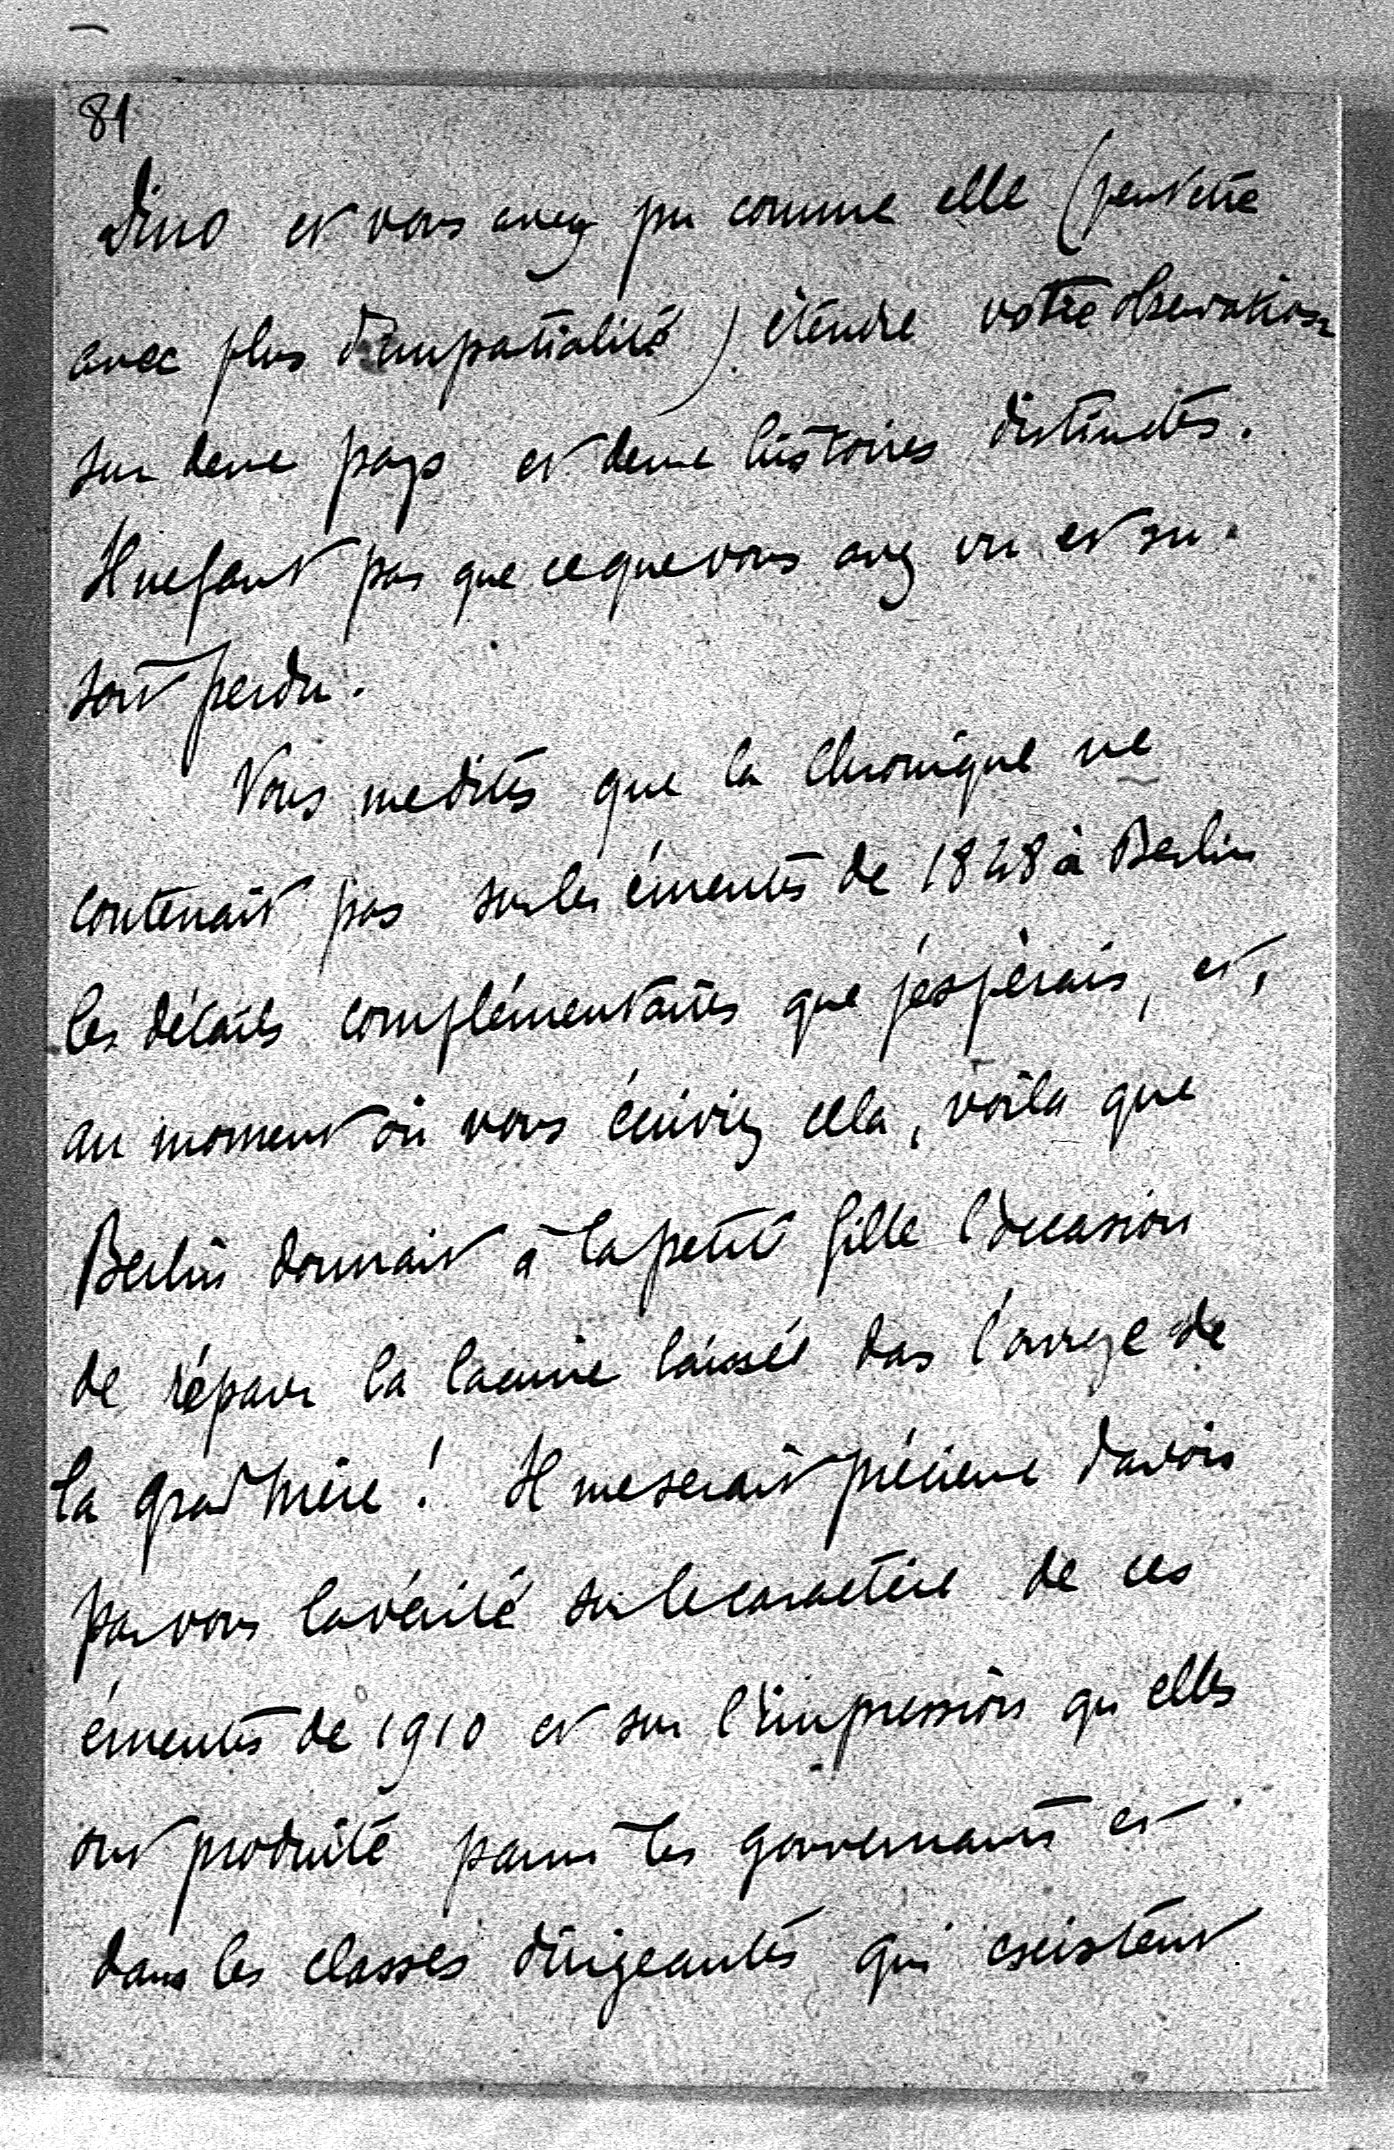 81
Dino et vous avez pu comme elle (peutetre
avec plus d'impartialité) étendre votre observation
sur deux pays et deux histoires distinctes.
Il ne faut pas que ce que vous avez vu et su
soit perdu.
Vous me dites que la Chronique ne
contenait pas sur les émeutes de 1848 à Berlin
les détails complémentaires que j'espérais, et,
au moment où vous écriviez cela, voila que
Berlin donnait à la petite fille l'occasion
de réparer la lacune laissée dans l'ouvrage de
la grand'mère! Il me serait précieux d'avoir
par vous la vérité sur le caractère de ces
émeutes de 1910 et sur l'impression qu'elles
ont produite parmi les gouvernants et
dans les classes dirigeantes qui existent